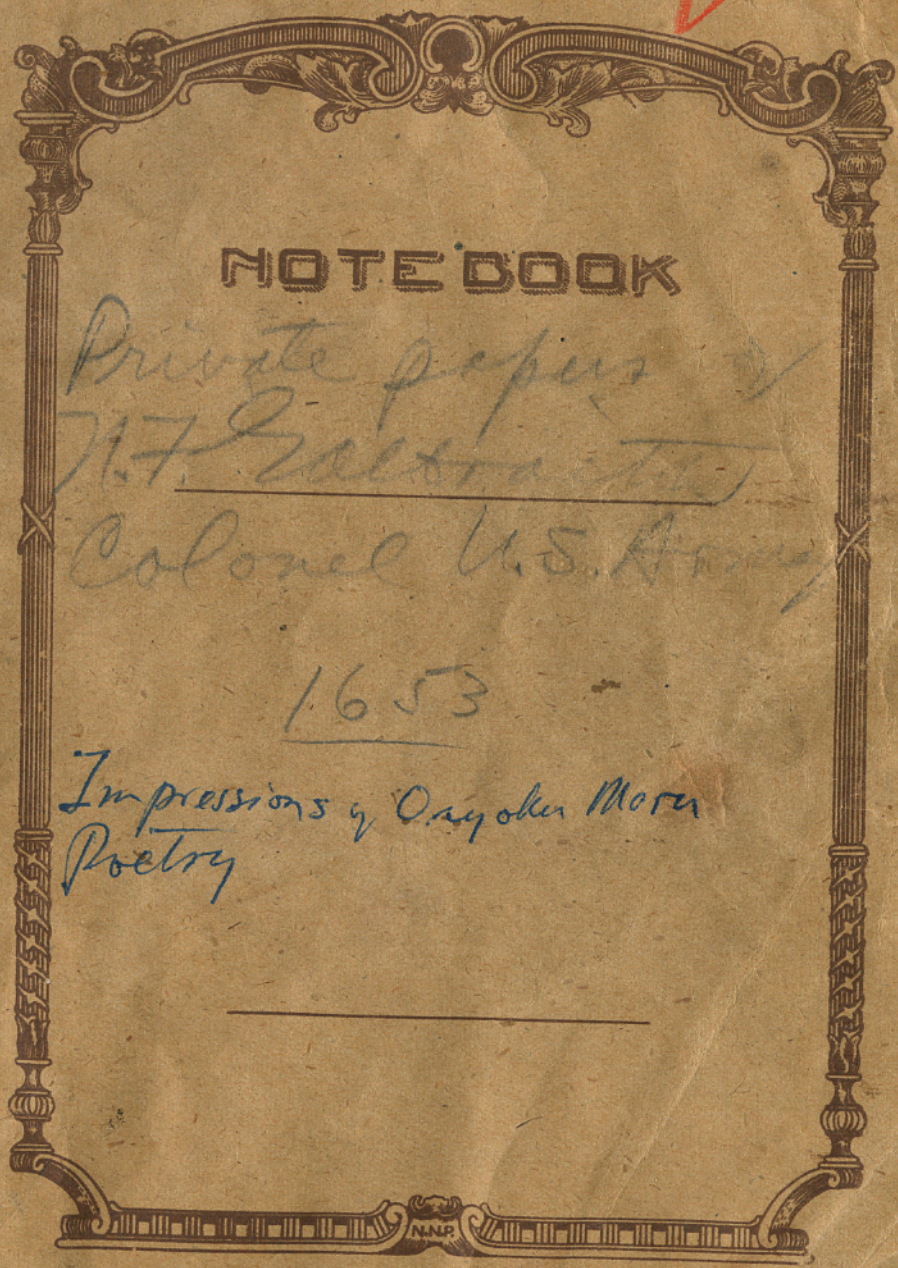 NOTE BOOK
Private papers of
N.F. Galbraith
Colonel U.S. Army
1653
Impressions of Onyoku Maru
Poetry
N.N.P.